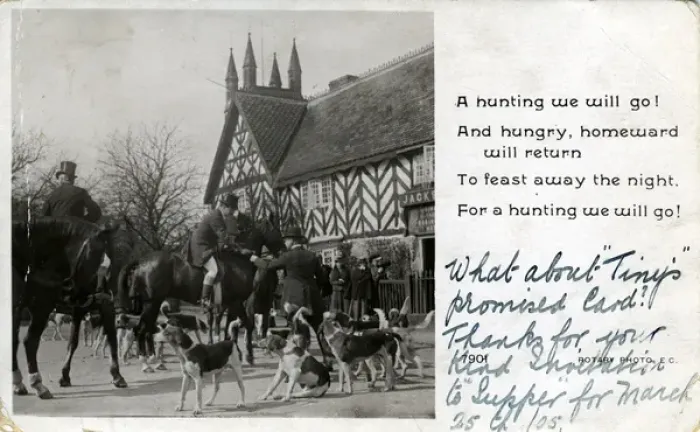 JACK
A hunting we will go!
And hungry, homeward
will return
To feast away the night.
For a hunting we will go!
What about "Tiny's"
promised Card?!
Thanks for your
Kind Invitation
7901
ROTARY PHOTO, E.C.
to "Supper" for March
25th /05.